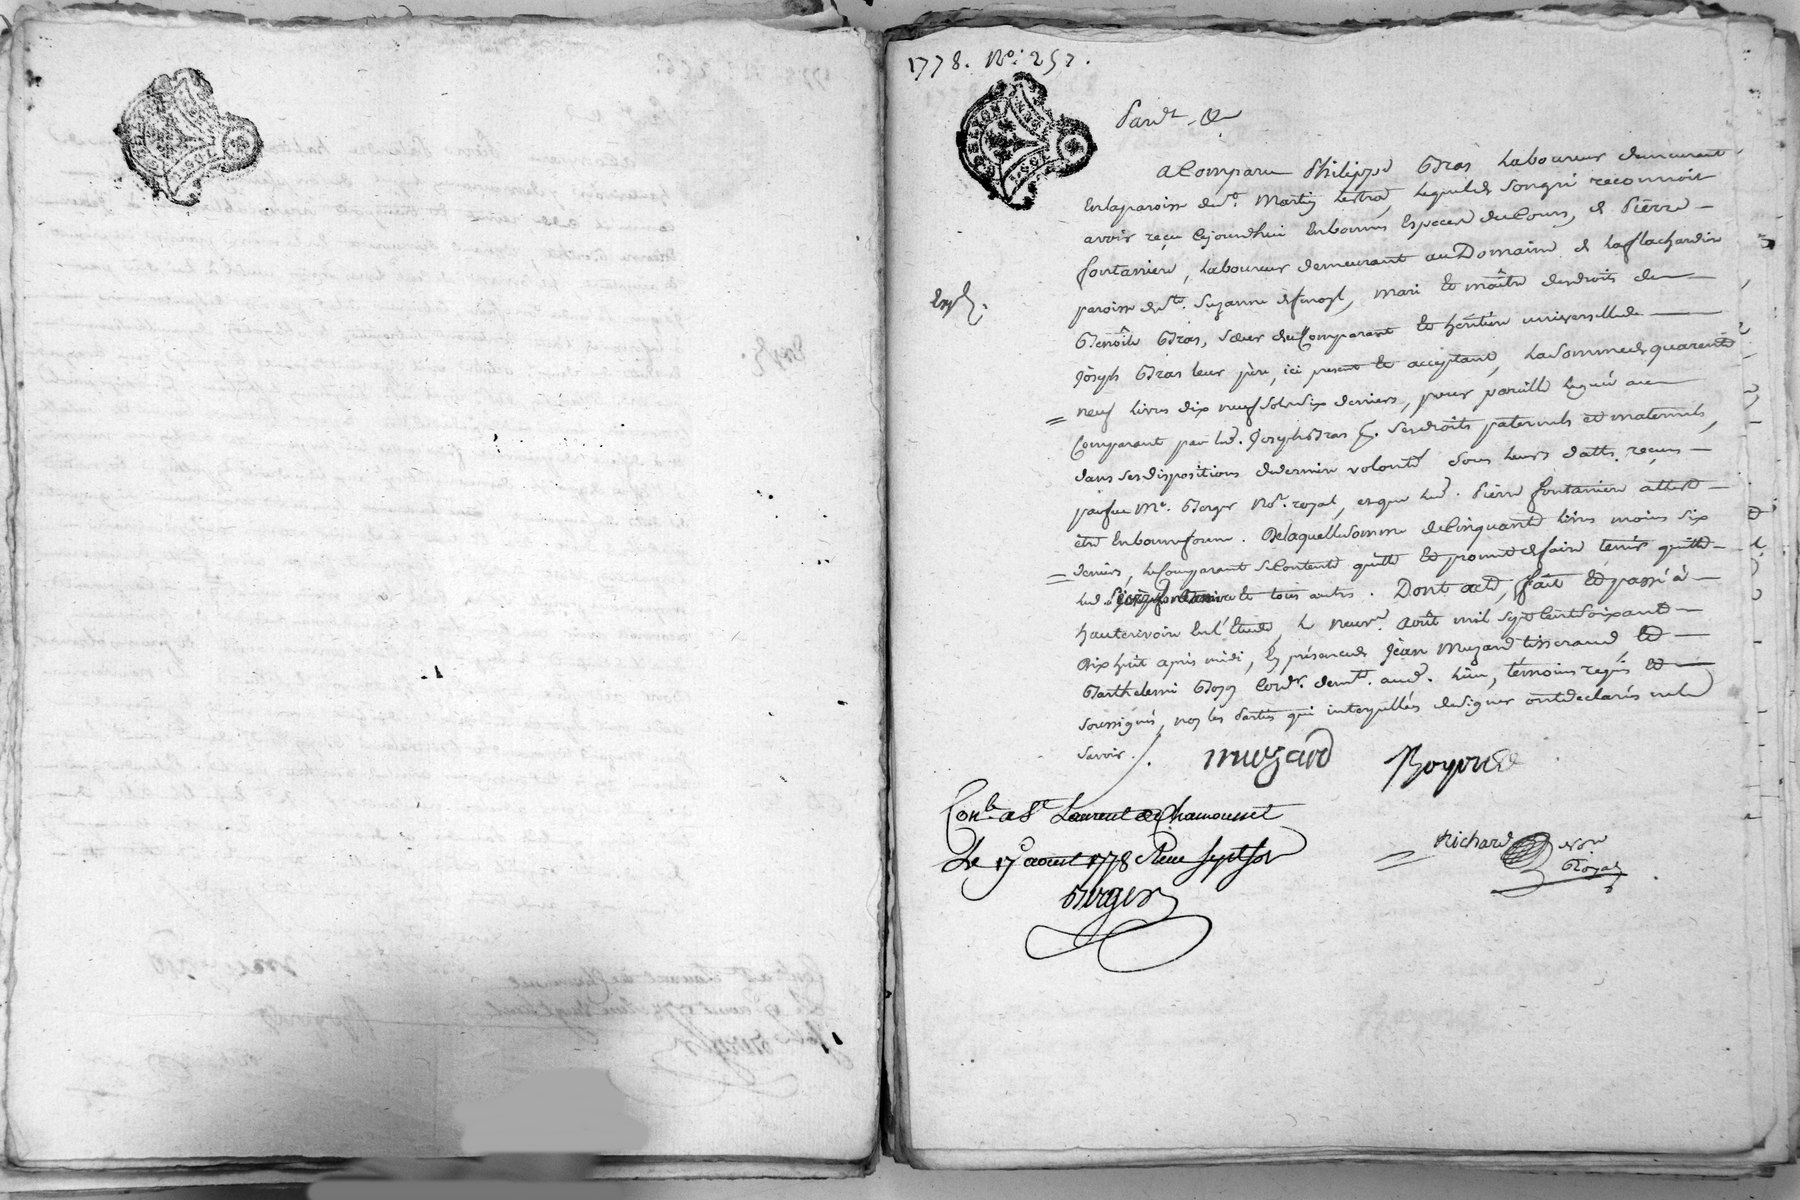 1778. No. 257.
Pardt &
A Comparu Philippe Gras Laboureur demeurant
En la paroisse de St. Martin Lestra, Lequel de son gré reconnoit
avoir reçu cejourd'hui En bonnes Especes du Cours, de Pierre
fontaniere, Laboureur demeurant au Domaine de Laflachardiere
Exp.
paroisse de Ste. Suzanne, mari Et maître des droits de
Benoîte Gras, soeur du Comparant Et héritiere universelle de
joseph Gras leur père, ici present Et acceptant, La Somme de quarente
neuf Livres dix neuf sols six deniers, pour pareille Leguée au
Comparant par led. joseph Gras p. ses droits paternels et maternels,
dans ses dispositions de derniere volonté sous leurs dattes, reçues
par feu Me. Berger No.re royal, et que led. Pierre fontaniere atteste
être En bonne forme. De laquelle somme de Cinquante Livres moins six
deniers, Le Comparant se Contente quitte Et promet de faire tenir quitte
led. Pierre fontaniere Et tous autres. Dont acte, fait Et passé à
hauterivoire En l'Etude, le neuv.e Août mil sept Cent soixante
Dix huit après midi, En présence de jean Muzard tisserand, Et
Barthelemi Cord.r demt. aud. Lieu, témoins requis Et
soussignés, non les Parties qui interpellées de signer ont declarés ne le
savoir.
muzard
Boyond
Con.le a St Laurent de Chamousset
Le 17e aout 1778 Reçu sept sols
Berger
Richard
Nore
Royal